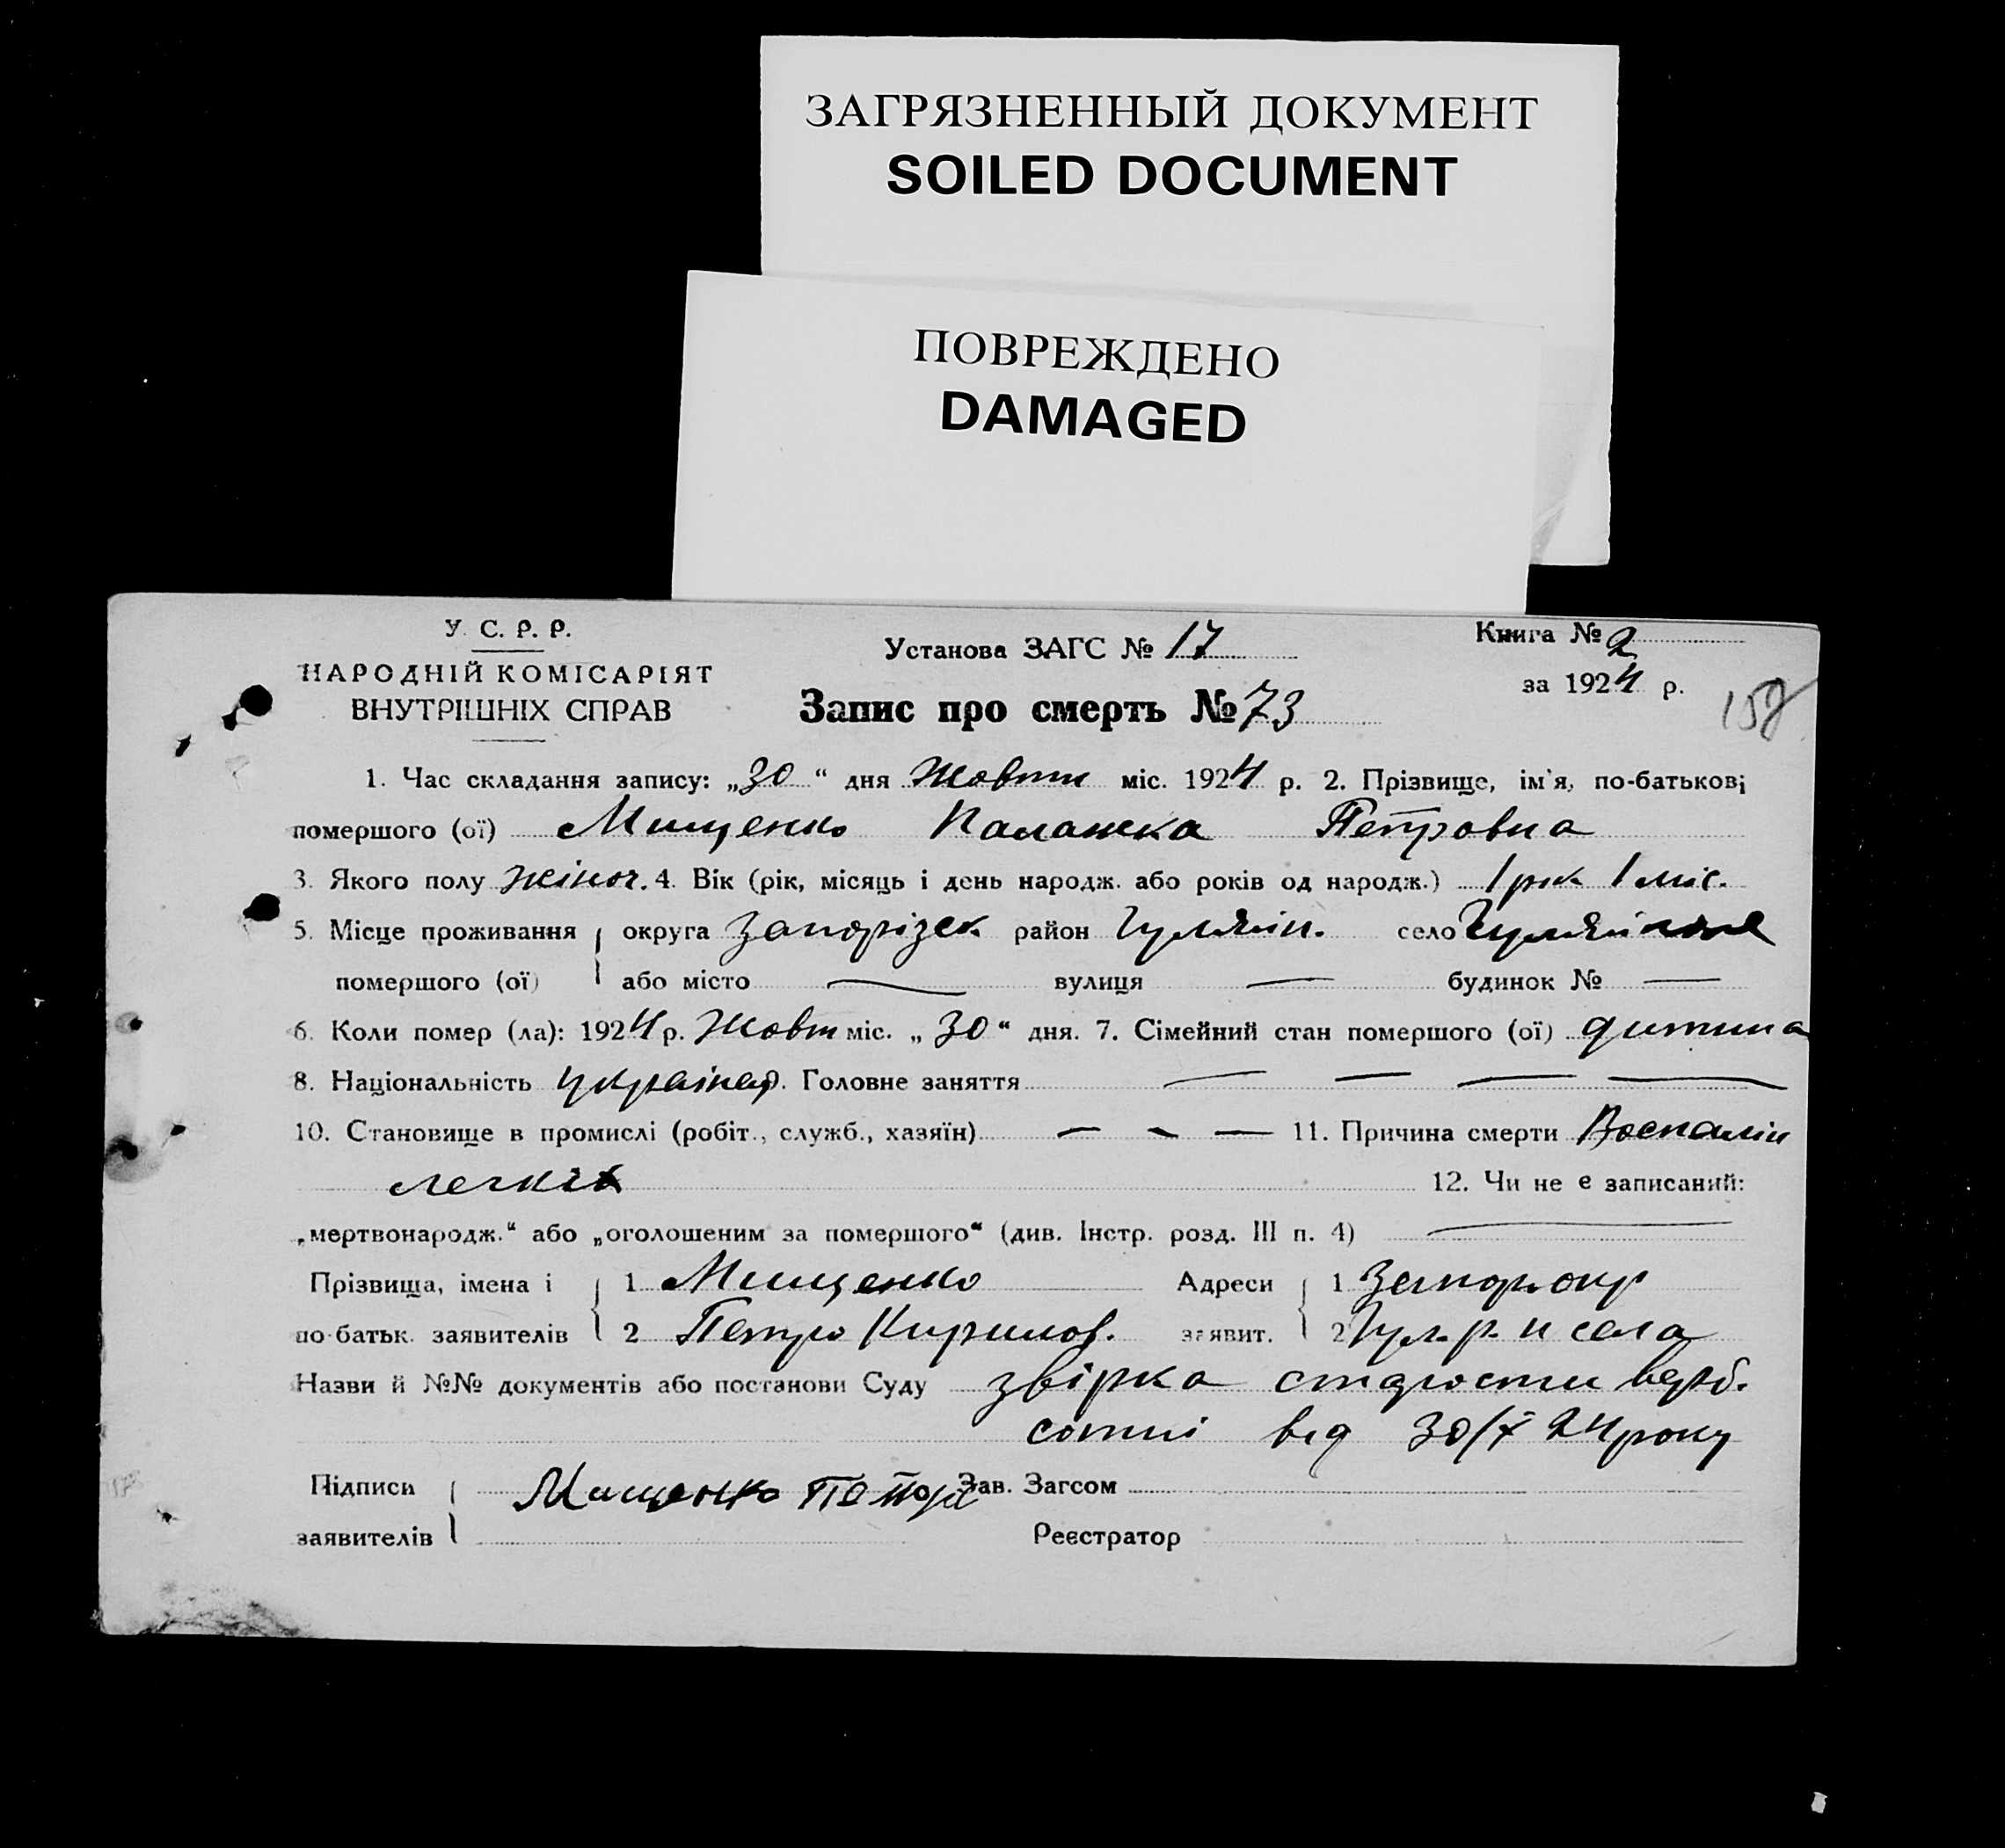 ЗАГРЯЗНЕННЫЙ ДОКУМЕНТ
SOILED DOCUMENT
ПОВРЕЖДЕНО
DAMAGED
У. С. Р. Р.
НАРОДНІЙ КОМІСАРІЯТ
ВНУТРІШНІХ СПРАВ
Установа ЗАГС № 17
Запис про смерть № 73
Книга № 2
за 1924 р.
1. Час складання запису: „30“ дня Жовтн міс. 1924 р. 2. Прізвище, ім'я, по-батькові
помершого (ої) Мищенко Палажка Петровна
3. Якого полу жіноч. 4. Вік (рік, місяць і день народж. або років од народж.) 1 рік 1 міс.
5. Місце проживання округа Запорізск район Гуляйп. село Гуляйполе
помершого (ої) або місто — вулиця — будинок № —
6. Коли помер (ла): 1924 р. Жовт міс. „30“ дня. 7. Сімейний стан помершого (ої) дитина
8. Національність україн. Головне заняття — — — —
10. Становище в промислі (робіт., служб., хазяїн) — - — 11. Причина смерти Воспалін
легких
12. Чи не є записаний:
„мертвонародж.“ або „оголошеним за помершого“ (див. Інстр. розд. III п. 4) —
Прізвища, імена і 1 Мищенко Адреси 1 Запор. окр
по-батьк. заявителів 2 Петро Кирилов. заявит. 2 Гул. р. и села
Назви й №№ документів або постанови Суду звірка старости верб.
сотні від 30/X 24 року
Підписи Мищенко Петро Зав. Загсом
заявителів Реєстратор